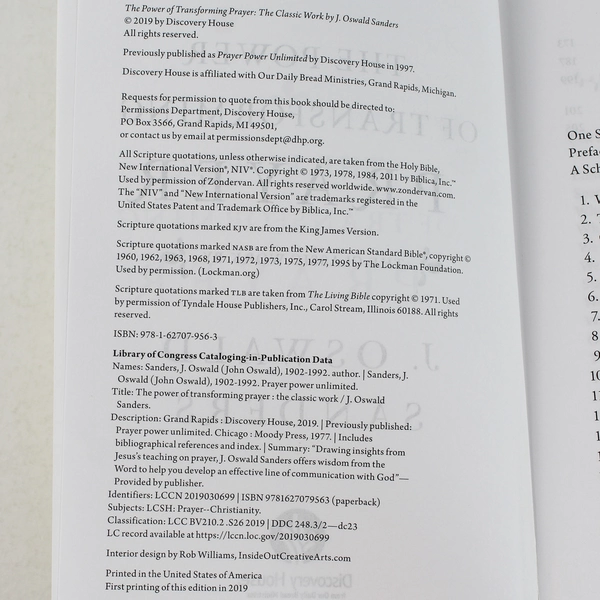 The Power of Transforming Prayer: The Classic Work by J. Oswald Sanders
© 2019 by Discovery House
All rights reserved.
Previously published as Prayer Power Unlimited by Discovery House in 1997.
Discovery House is affiliated with Our Daily Bread Ministries, Grand Rapids, Michigan.
Requests for permission to quote from this book should be directed to:
Permissions Department, Discovery House,
PO Box 3566, Grand Rapids, MI 49501,
or contact us by email at permissionsdept@dhp.org.
All Scripture quotations, unless otherwise indicated, are taken from the Holy Bible,
New International Version®, NIV®. Copyright © 1973, 1978, 1984, 2011 by Biblica, Inc.™
Used by permission of Zondervan. All rights reserved worldwide. www.zondervan.com.
The “NIV” and “New International Version” are trademarks registered in the
United States Patent and Trademark Office by Biblica, Inc.™
Scripture quotations marked KJV are from the King James Version.
Scripture quotations marked NASB are from the New American Standard Bible®, copyright ©
1960, 1962, 1963, 1968, 1971, 1972, 1973, 1975, 1977, 1995 by The Lockman Foundation.
Used by permission. (Lockman.org)
Scripture quotations marked TLB are taken from The Living Bible copyright © 1971. Used
by permission of Tyndale House Publishers, Inc., Carol Stream, Illinois 60188. All rights
reserved.
ISBN: 978-1-62707-956-3
Library of Congress Cataloging-in-Publication Data
Names: Sanders, J. Oswald (John Oswald), 1902-1992. author. | Sanders, J.
Oswald (John Oswald), 1902-1992. Prayer power unlimited.
Title: The power of transforming prayer : the classic work / J. Oswald
Sanders.
Description: Grand Rapids : Discovery House, 2019. | Previously published:
Prayer power unlimited. Chicago : Moody Press, 1977. | Includes
bibliographical references and index. | Summary: “Drawing insights from
Jesus’s teaching on prayer, J. Oswald Sanders offers wisdom from the
Word to help you develop an effective line of communication with God”—
Provided by publisher.
Identifiers: LCCN 2019030699 | ISBN 9781627079563 (paperback)
Subjects: LCSH: Prayer--Christianity.
Classification: LCC BV210.2 .S26 2019 | DDC 248.3/2—dc23
LC record available at https://lccn.loc.gov/2019030699
Interior design by Rob Williams, InsideOutCreativeArts.com
Printed in the United States of America
First printing of this edition in 2019
One S
Prefa
A Sch
1.
2.
3.
4.
5.
6.
7.
8
9
10
11